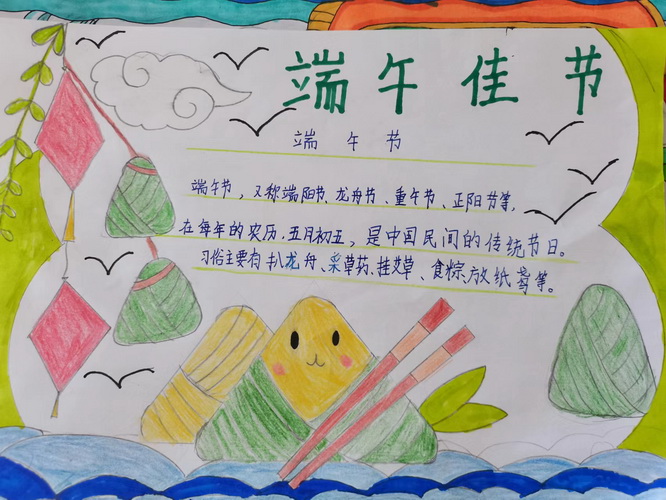 端午佳节
端午节
端午节，又称端阳节、龙舟节、重午节、正阳节等，
在每年的农历.五月初五，是中国民间的传统节日。
习俗主要有扒龙舟、采草药、挂艾草、食粽、放纸鸢等。